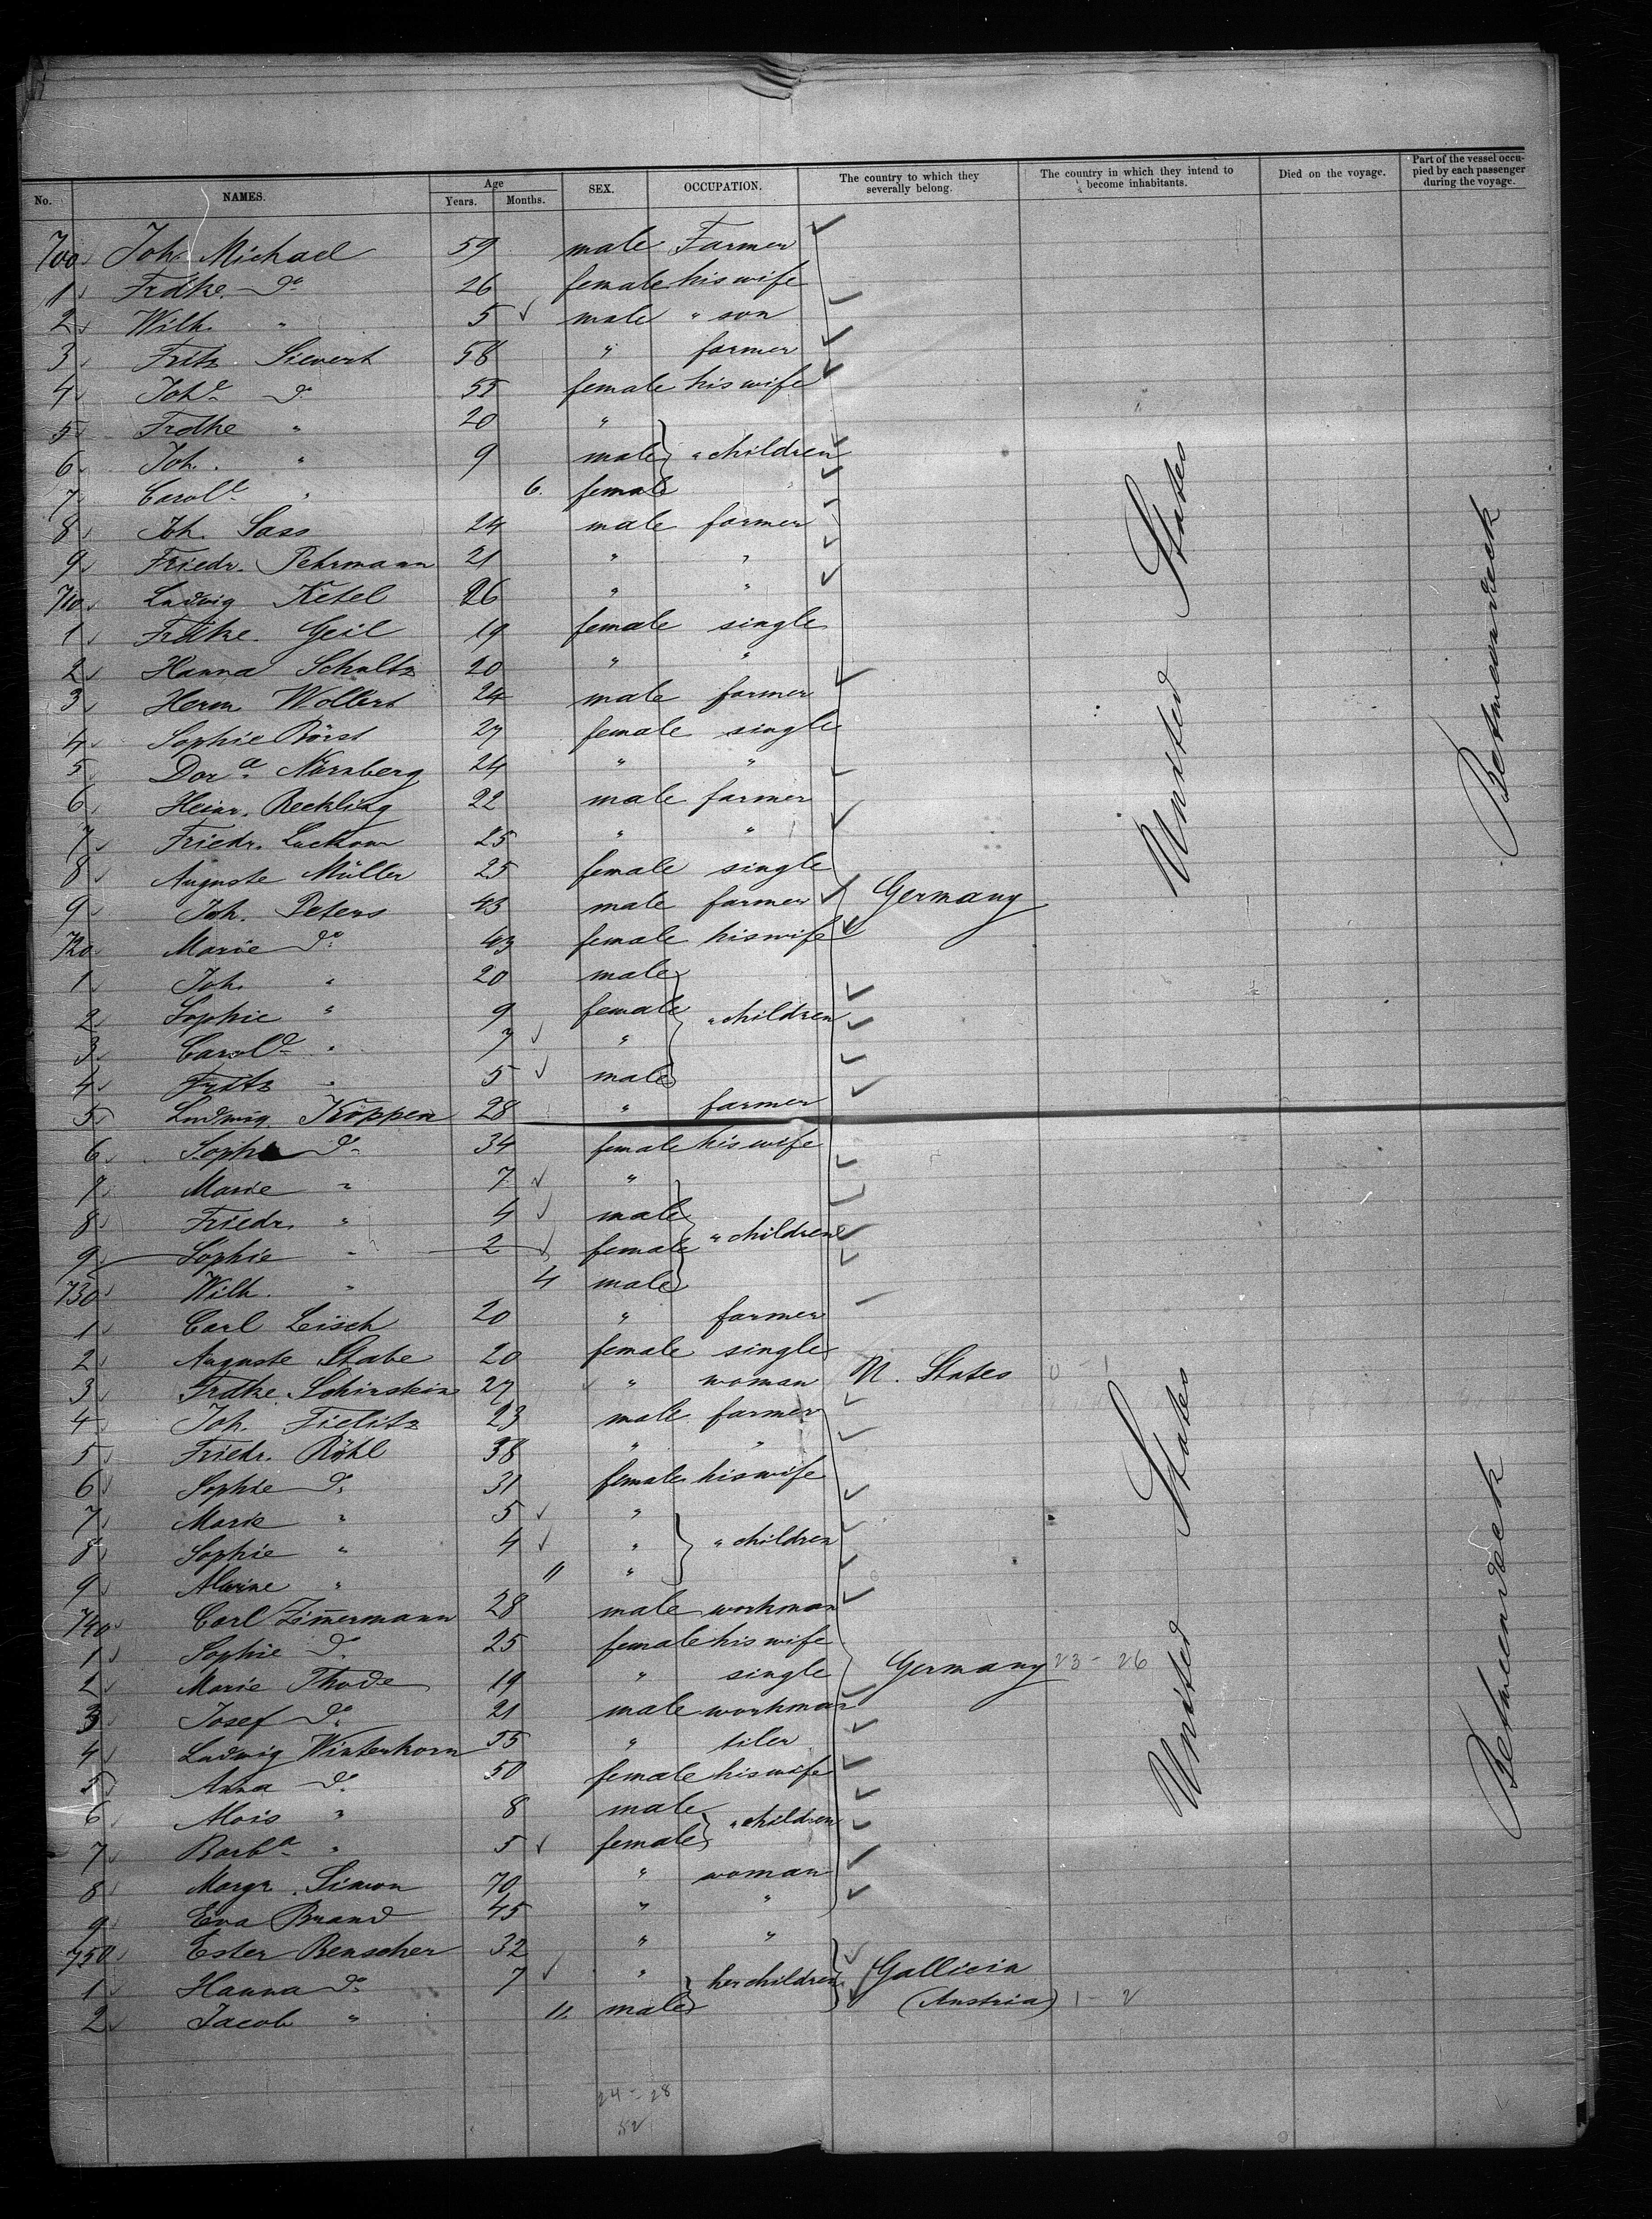 No. NAMES. Age Years. Months. SEX. OCCUPATION. The country to which they severally belong. The country in which they intend to become inhabitants. Died on the voyage. Part of the vessel occupied by each passenger during the voyage.
700 Joh. Michael 59 male Farmer
1 Frdke. do 26 female his wife
2 Wilh. " 5 male " son
3 Fritz Sievert 58 " farmer
4 Joh.e do 55 female his wife
5 Frdke " 20 "
6 Joh. " 9 male " children
7 Carol.e " 6. female
8 Joh. Sass 24 male farmer
9 Friedr. Pehrmann 21 " "
710 Ludwig Ketel 26 " "
1 Frdke. Geil 19 female single
2 Hanna Schultz 20 " "
3 Herm. Wollert 24 male farmer
4 Sophie Börst 27 female single
5 Dor.a Nürnberg 24 " "
6 Heinr. Reckling 22 male farmer
7 Friedr. Luckow 25 " "
8 Auguste Müller 25 female single
9 Joh. Peters 43 male farmer Germany United States Betweendeck
720 Marie do 43 female his wife
1 Joh. " 20 male
2 Sophie " 9 female " children
3 Carol.e " 7 "
4 Fritz " 5 male
5 Ludwig Köppen 28 " farmer
6 Soph do 34 female his wife
7 Marie " 7 "
8 Friedr. " 4 male
9 Sophie " 2 female " children
730 Wilh. " 4 male
1 Carl Leisch 20 " farmer
2 Auguste Stabe 20 female single
3 Frdke. Schirstein 27 " woman U. States
4 Joh. Fielitz 23 male farmer
5 Friedr. Röhl 38 " "
6 Sophie do 31 female his wife
7 Marie " 5 "
8 Sophie " 4 " " children
9 Marine " 11 "
740 Carl Zimermann 28 male workman
1 Sophie do 25 female his wife
2 Marie Thode 19 " single Germany 23 - 26 United States Betweendeck
3 Josef do 21 male workman
4 Ludwig Winterkorn 55 " tiler
5 Anna do 50 female his wife
6 Alois " 8 male " children
7 Barb.a " 5 female
8 Margr. Simon 70 " woman
9 Eva Brand 45 " "
750 Ester Renscher 32 " "
1 Hanna do 7 " her children Gallicia
2 Jacob " 11. male (Austria) 1 - 2
24 - 28
52